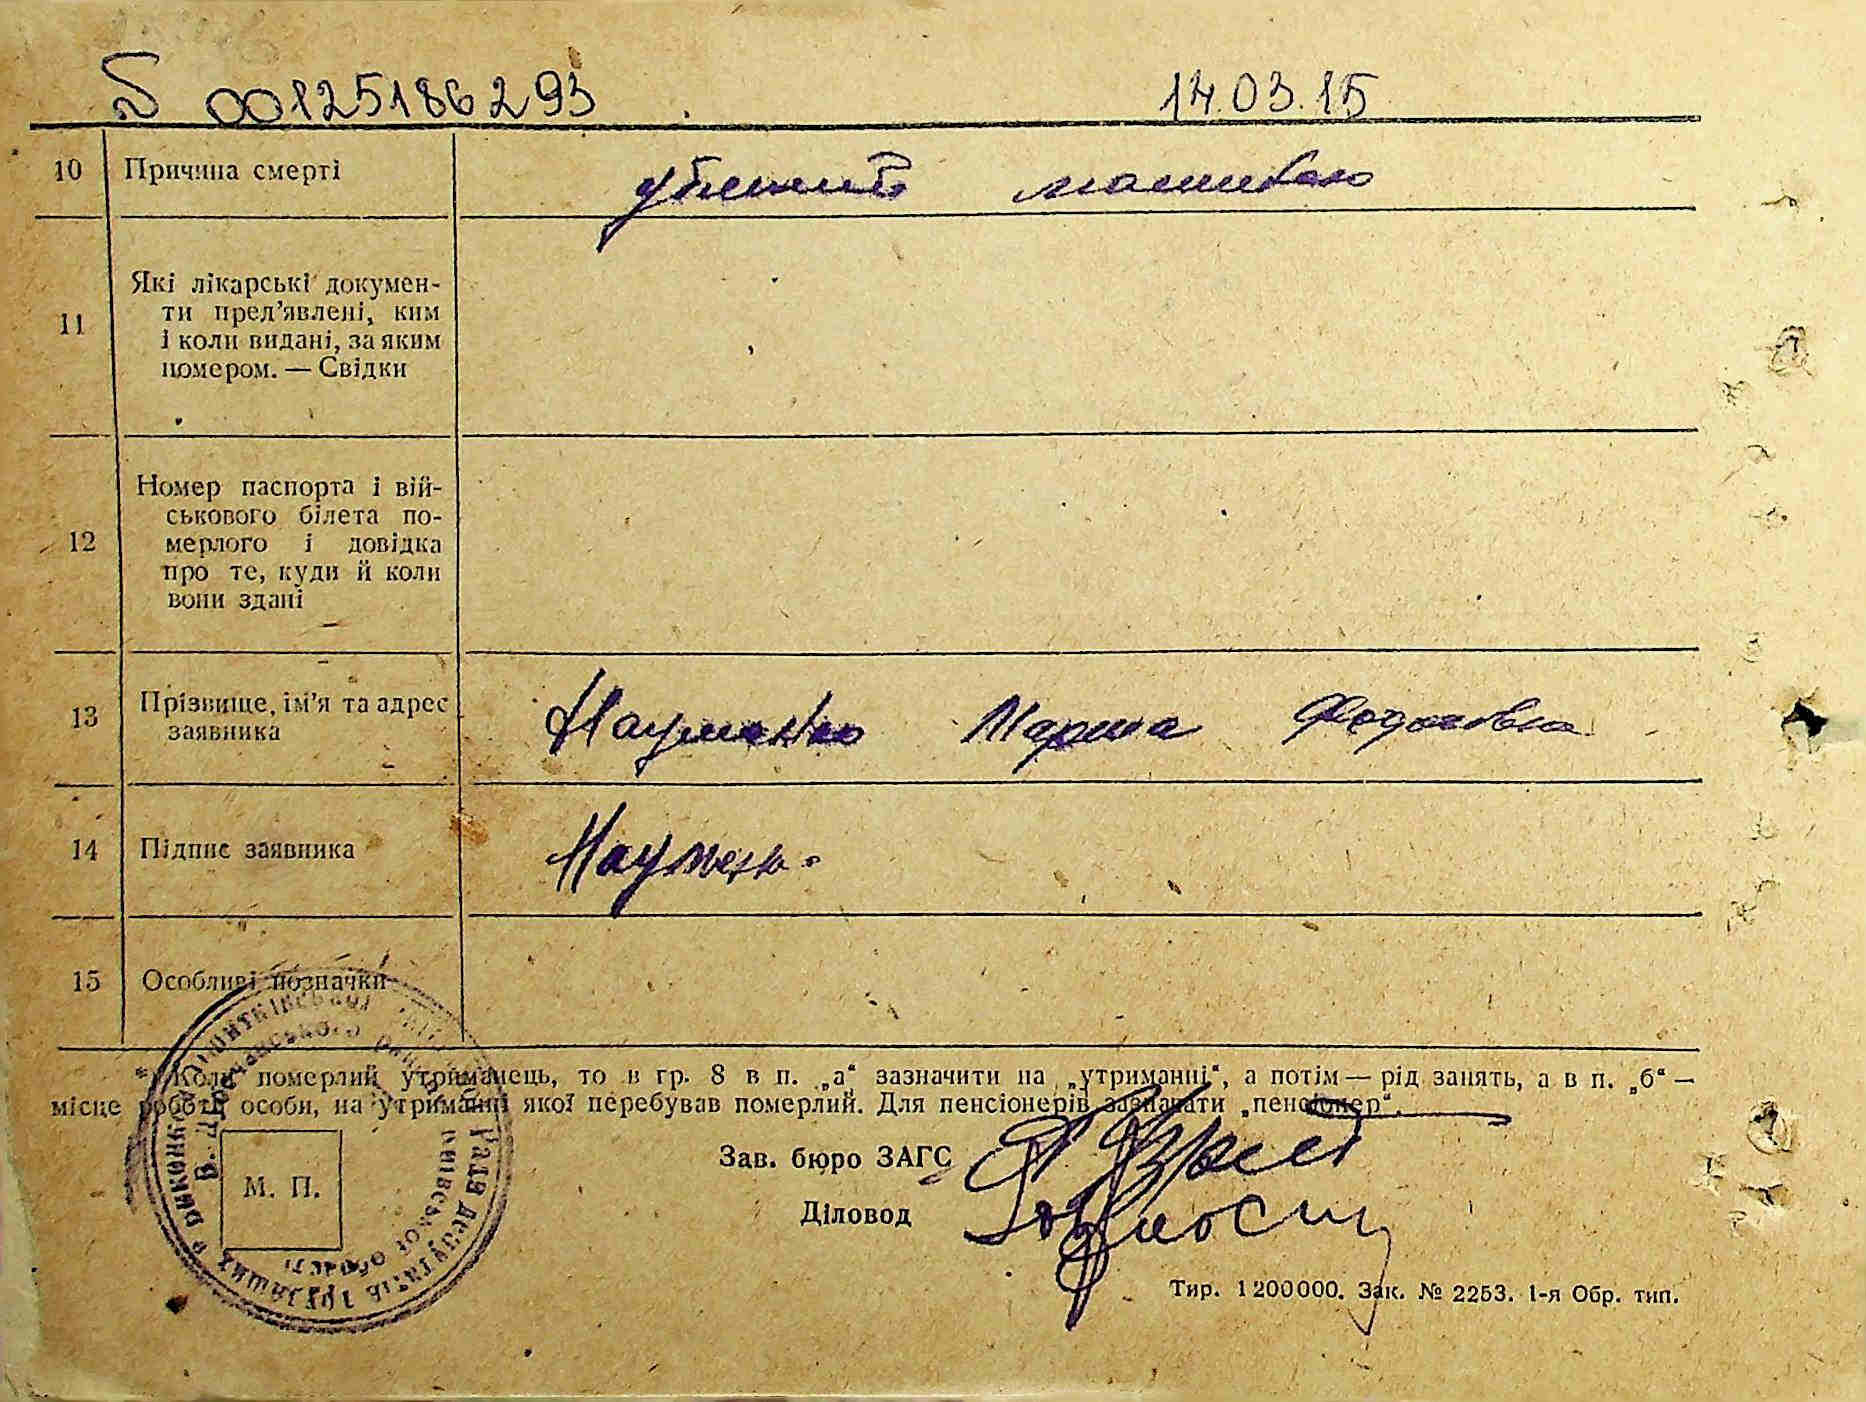 S 00125186293 14.03.15
10 Причина смерті убитий машиною
11 Які лікарські докумен-
ти пред’явлені, ким
і коли видані, за яким
номером. — Свідки
12 Номер паспорта і вій-
ськового білета по-
мерлого і довідка
про те, куди й коли
вони здані
13 Прізвище, ім’я та адрес Науменко Мария Федоговна
заявника
14 Підпис заявника Наумен
15 Особливі позначки
*) Коли померлий утриманець, то в гр. 8 в п. „а“ зазначити на „утриманні“, а потім — рід занять, а в п. „б“ —
місце роботи особи, на утриманні якої перебував померлий. Для пенсіонерів зазначати „пенсіонер“.
Зав. бюро ЗАГС
Діловод
М. П.
Рада депутатів трудящих
Київської області
Тир. 1200000. Зак. № 2253. 1-я Обр. тип.